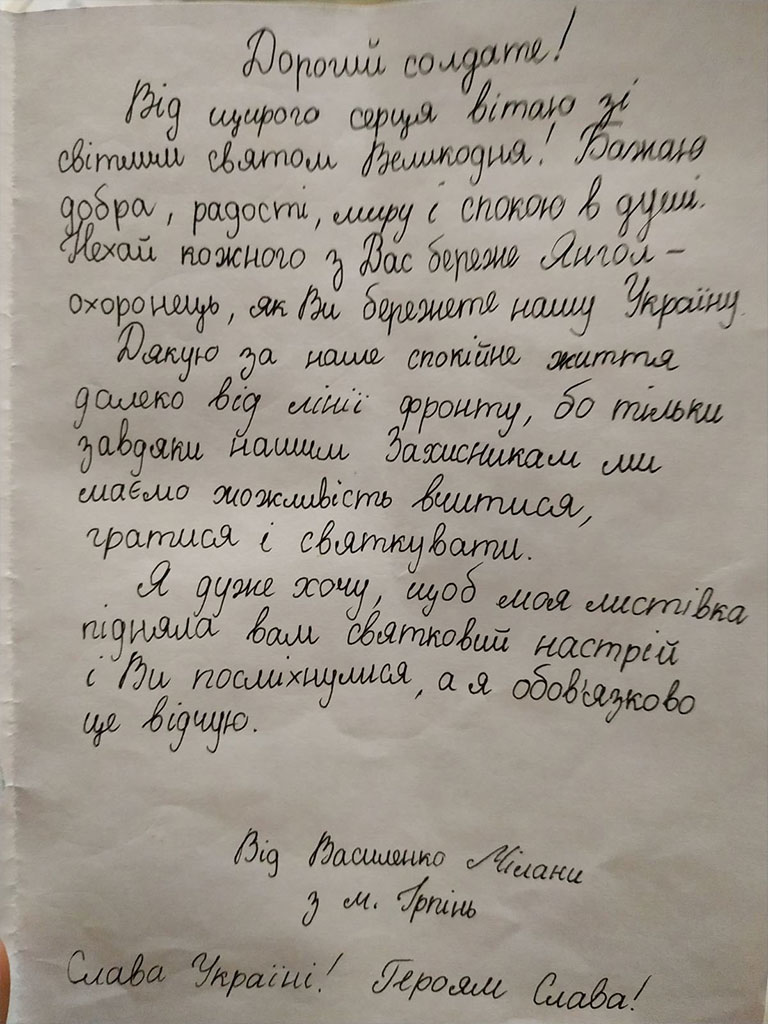 Дорогий солдате!
Від щирого серця вітаю зі
світлим святом Великодня! Бажаю
добра, радості, миру і спокою в душі.
Нехай кожного з Вас береже Янгол-
охоронець, як Ви бережете нашу Україну.
Дякую за наше спокійне життя
далеко від лінії фронту, бо тільки
завдяки нашим Захисникам ми
маємо можливість вчитися,
гратися і святкувати.
Я дуже хочу, щоб моя листівка
підняла вам святковий настрій
і Ви посміхнулися, а я обов'язково
це відчую.
Від Василенко Мілани
з м. Ірпінь
Слава Україні! Героям Слава!